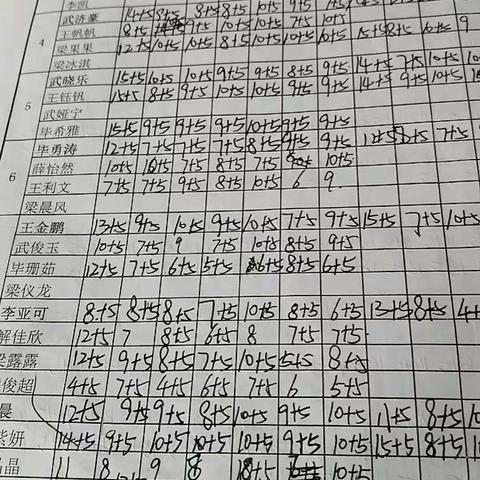 李凯 14+5 8+5 8+5 8+5 10+5 9+5
武济豪
4 王帆帆 8+5 9+5 10+5 10+5 7+5 10+5
梁果果 12+5 10+5 10+5 8+5 10+5 10+5 10+5 15+5 8+5 10+5 9
梁冰淇
武晓乐 15+5 10+5 10+5 9+5 9+5 8+5 9+5 14+5 7+5 10+5
5 王钰钒 15+5 8+5 9+5 10+5 10+5 9+5 9+5 14+5 9+5 10+5
武娅宁
毕希雅 15+5 9+5 9+5 9+5 10+5 9+5 9+5
毕勇涛 12+5 7+5 7+5 7+5 8+5 9+5 9+5 7+5
6 薛怡然 10+5 10+5 7+5 8+5 7+5 10+5
王利文 7+5 7+5 9+5 8+5 10+5 6 9
梁晨风
王金鹏 13+5 9+5 10+5 9+5 10+5 7+5 9+5 15+5 7+5 10+5
武俊玉 10+5 7+5 9 7+5 10+5 8+5 9+5
毕珊茹 12+5 7+5 6+5 5+5 6+5 8+5 6+5
梁仪龙
李亚可 8+5 8+5 8+5 7+5 10+5 8+5 6+5 13+5 8+5 4+
解佳欣 12+5 7 8+5 6+5 8 7+5 7+5
梁露露 12+5 9+5 8+5 7+5 10+5 5+5 8+5
俊超 4+5 7+5 4+5 6+5 7+5 6 5+5
晨 12+5 9+5 9+5 8+5 10+5 9+5 10+5 11+5 8+5 10
紫妍 14+5 9+5 10+5 10+5 10+5 9+5 10+5 15+5 8+5 10
晶 11 8 9 8 10+5